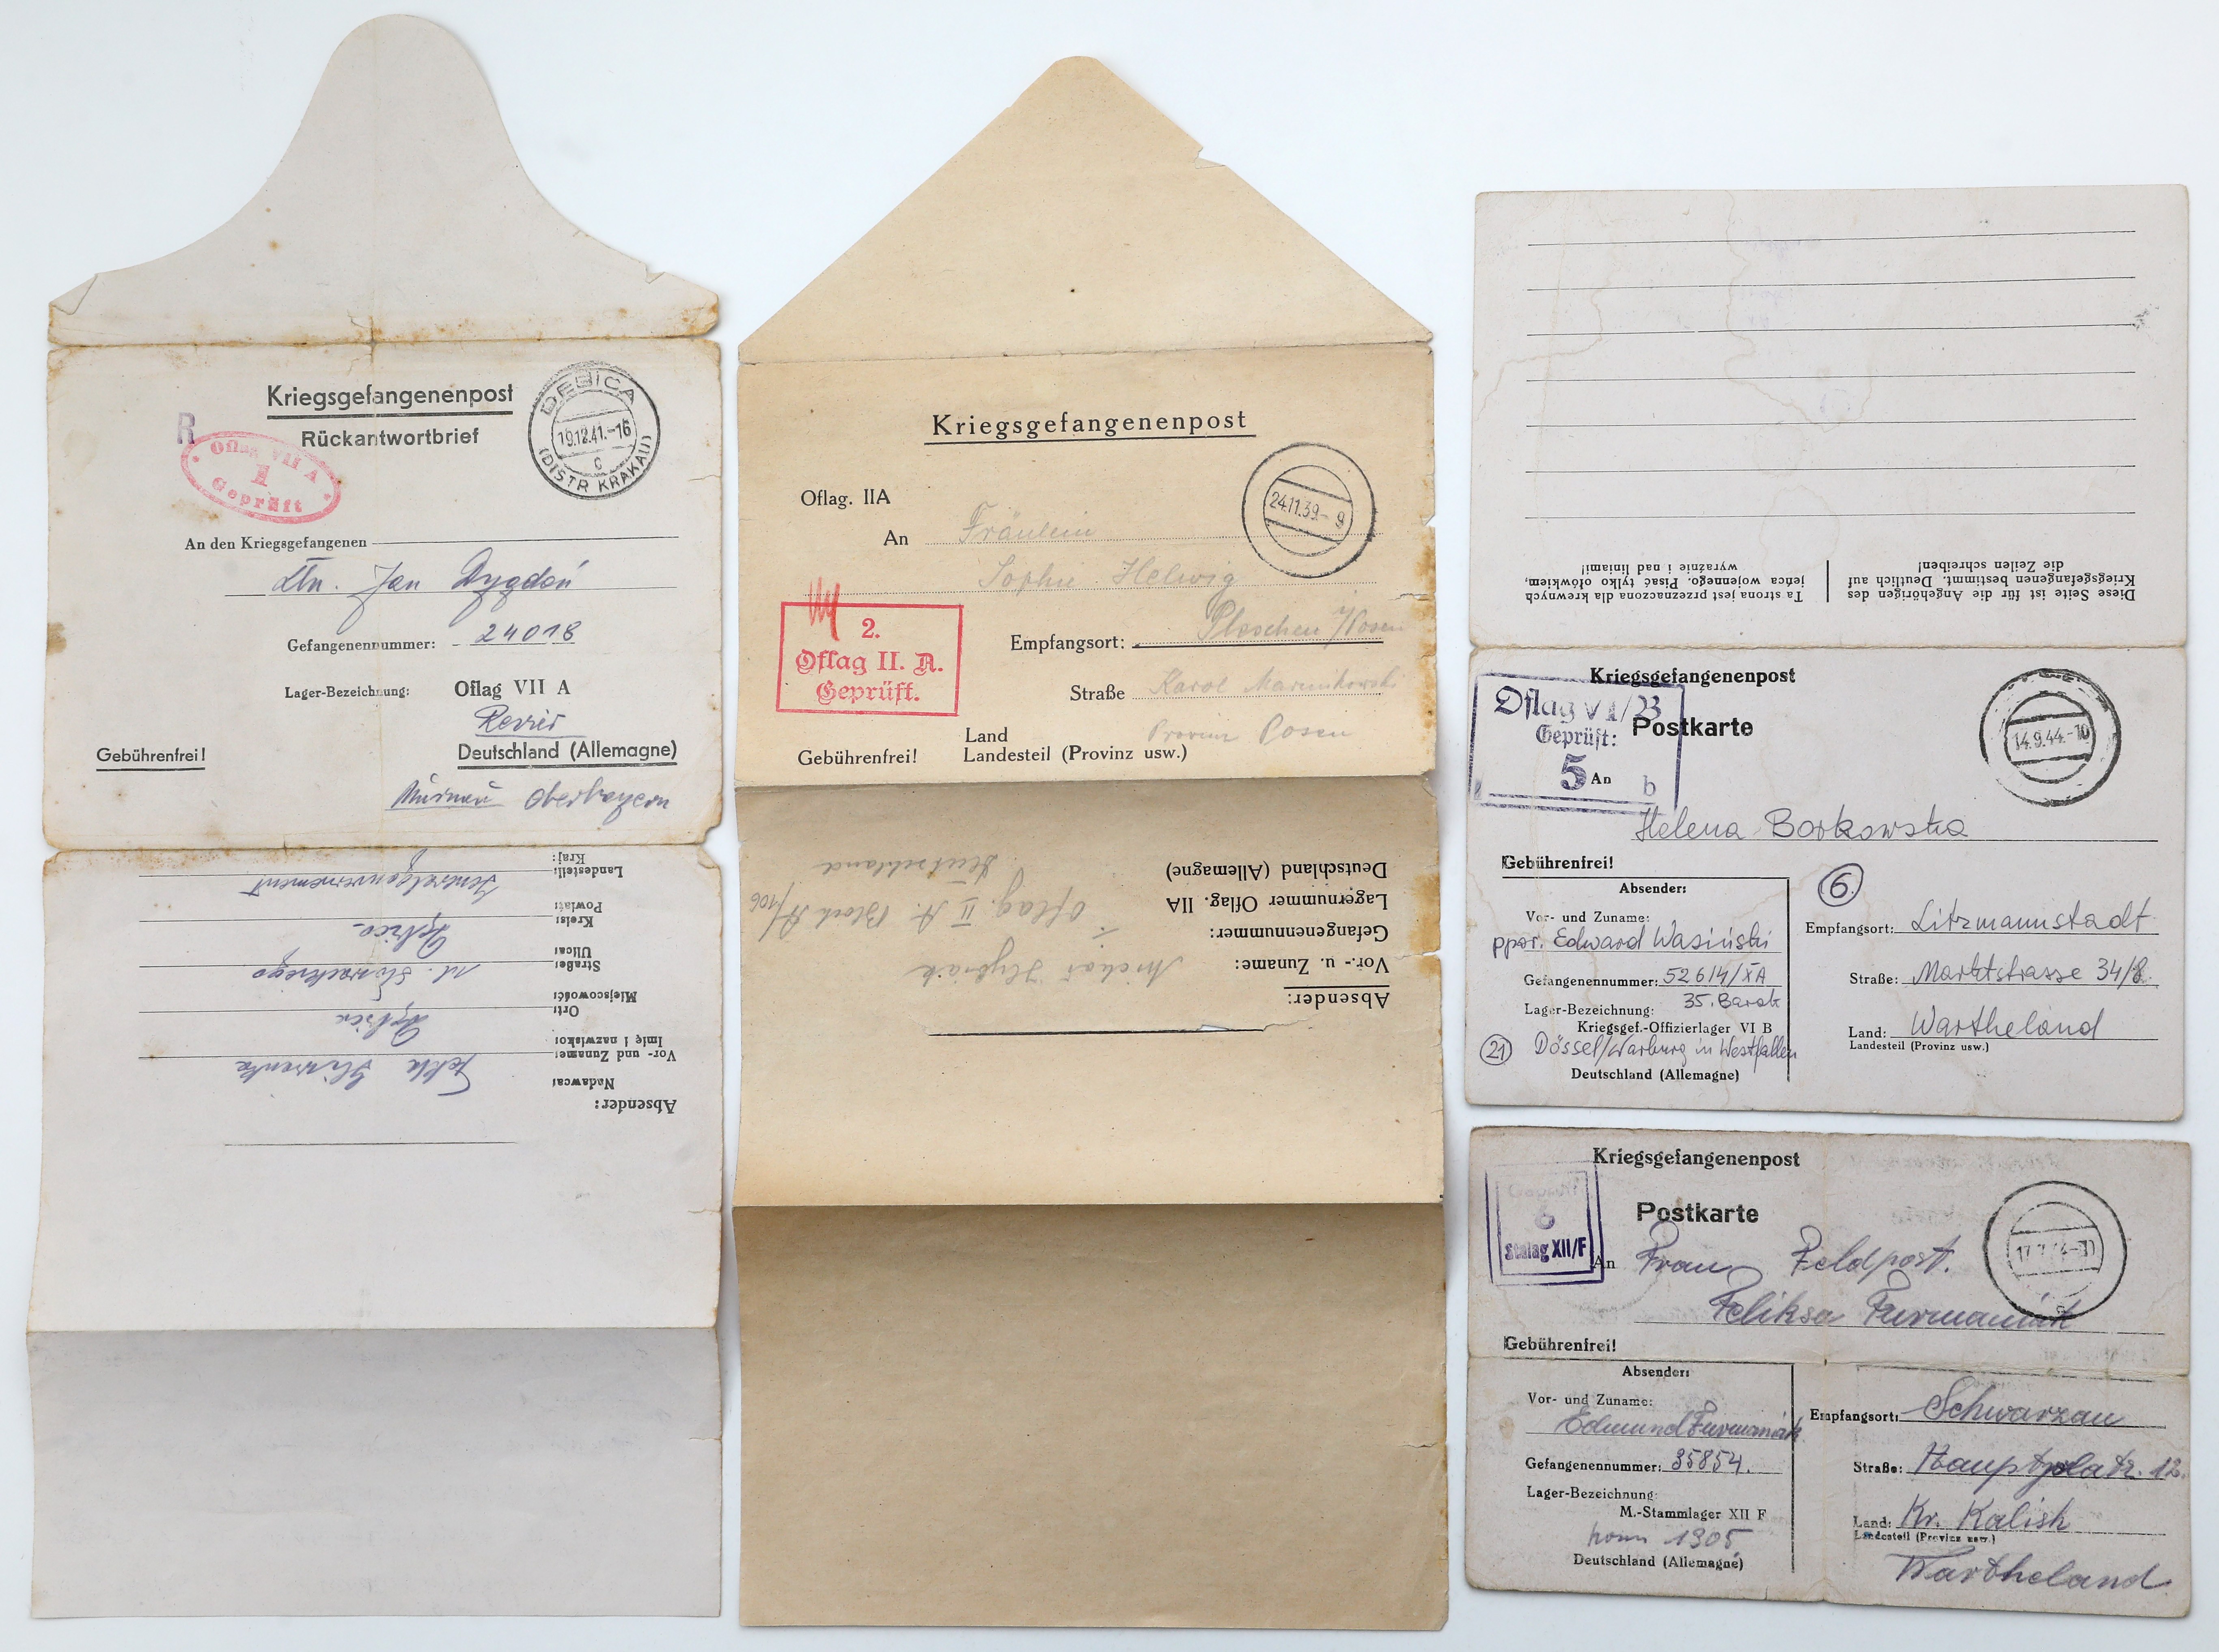 Kriegsgefangenenpost
Rückantwortbrief
R
Oflag VII A
1
Geprüft
DEBICA
19.12.41.-16
c
(DISTR KRAKAU)
An den Kriegsgefangenen
Ltn. Jan Dygdoń
Gefangenennummer: 24018
Lager-Bezeichnung: Oflag VII A
Revier
Gebührenfrei!
Deutschland (Allemagne)
Murnau Oberbayern
Absender:
Nadawca:
Vor- und Zuname:
Imię i nazwisko:
Ort:
Miejscowość:
Straße:
Ulica:
Kreis:
Powiat:
Landesteil: Generalgouvernement
Kraj:
Kriegsgefangenenpost
24.11.39-9
Oflag. IIA
An Fräulein
Sophie Helwig
2.
Oflag II. A.
Geprüft.
Empfangsort: Pleschen i/Posen
Straße Karol
Land
Landesteil (Provinz usw.) Provinz Posen
Gebührenfrei!
Absender:
Vor.- u. Zuname:
Gefangennummer: ÷
Lagernummer Oflag. IIA Oflag. II A. Block A/106
Deutschland (Allemagne) Deutschland
Diese Seite ist für die Angehörigen des
Kriegsgefangenen bestimmt. Deutlich auf
die Zeilen schreiben!
Ta strona jest przeznaczona dla krewnych
jeńca wojennego. Pisać tylko ołówkiem,
wyraźnie i nad liniami!
Kriegsgefangenenpost
Postkarte
Oflag VI/B
Geprüft:
5
b
14.9.44.-10
An
Helena Borkowska
Gebührenfrei!
Absender:
Vor- und Zuname:
ppor. Edward Wasiński
Gefangenennummer: 52614/XA
35. Barak
Lager-Bezeichnung:
Kriegsgef.-Offizierlager VI B
21 Dössel/Warburg in Westfallen
Deutschland (Allemagne)
6
Empfangsort: Litzmannstadt
Straße: Marktstrasse 34/8.
Land: Wartheland
Landesteil (Provinz usw.)
Kriegsgefangenenpost
Postkarte
Geprüft
6
Stalag XII/F
An Frau Feldpost.
Feliksa Furmaniak
Gebührenfrei!
Absender:
Vor- und Zuname:
Edmund Furmaniak
Gefangenennummer: 35854.
Lager-Bezeichnung:
M.-Stammlager XII F
1305
Deutschland (Allemagne)
Empfangsort: Schwarzau
Straße: Hauptplatz. 12.
Land: Kr. Kalisch
Landesteil (Provinz usw.)
Wartheland